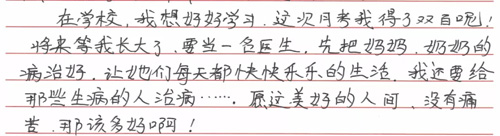 在学校，我想好好学习，这次月考我得了双百呢！
将来等我长大了，要当一名医生，先把妈妈、奶奶的
病治好，让她们每天都快快乐乐的生活，我还要给
那些生病的人治病……。愿这美好的人间，没有痛
苦，那该多好啊！